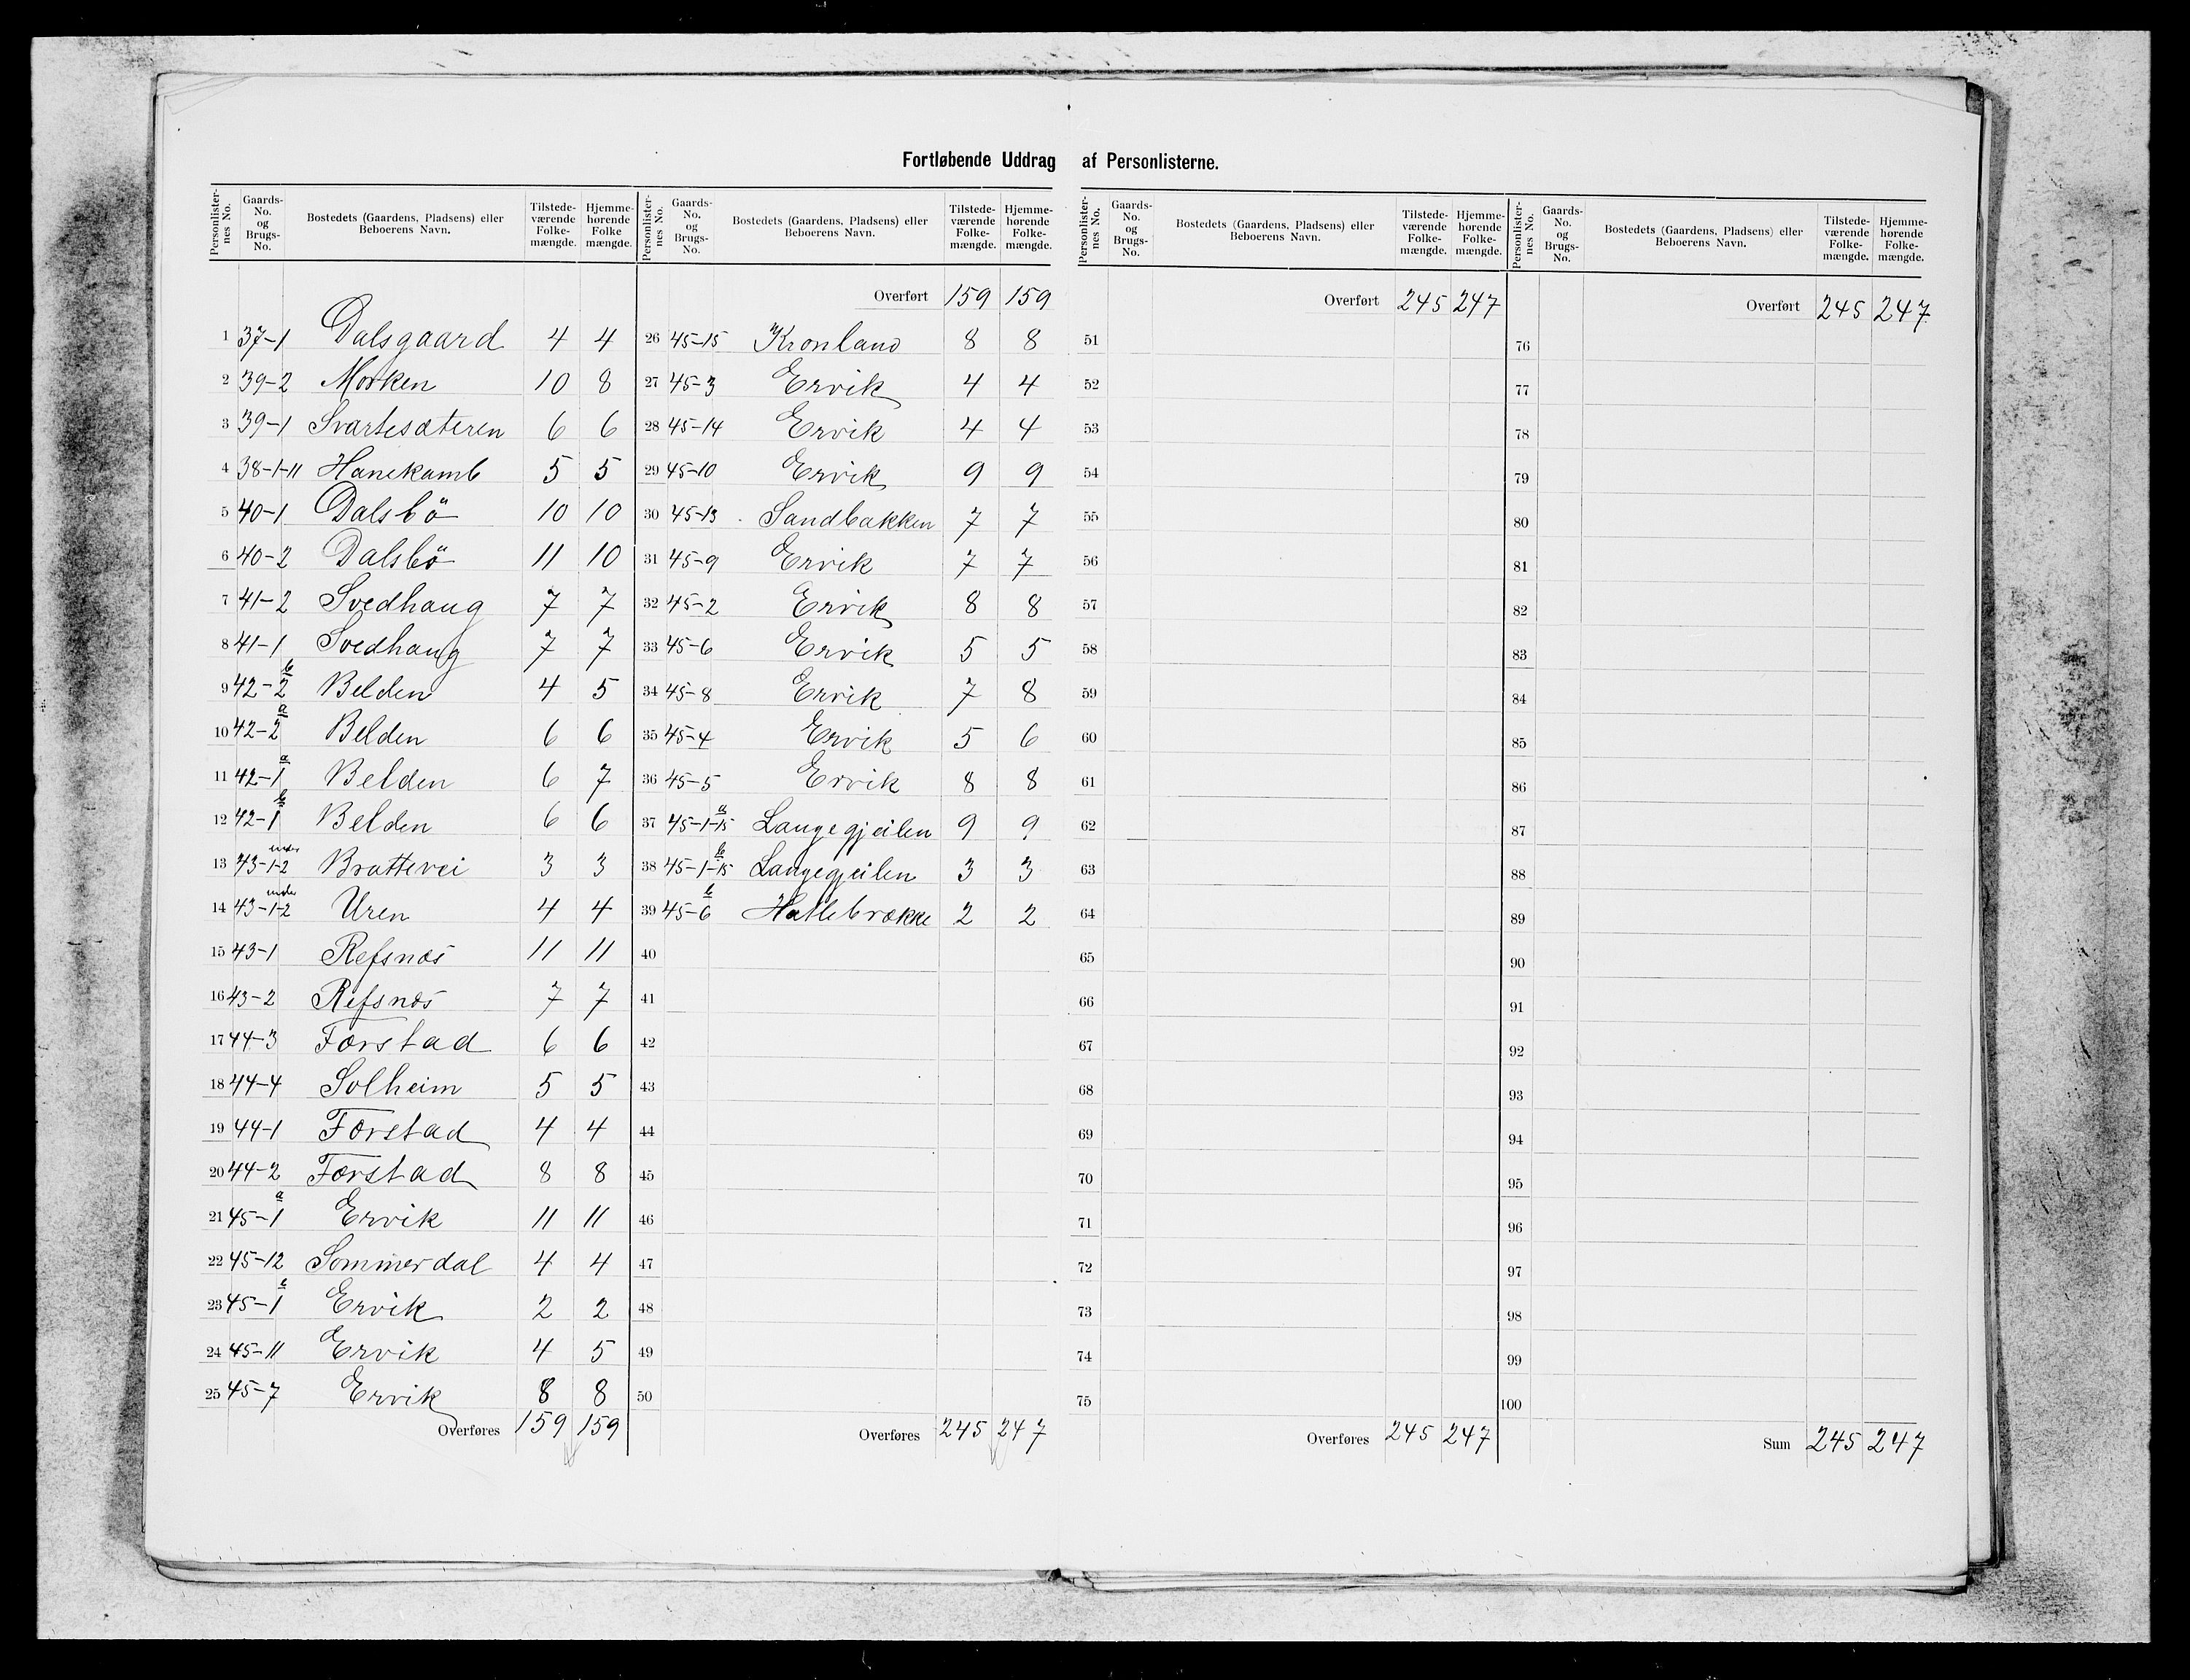 Fortløbende Uddrag af Personlisterne.
Personlisternes No. | Gaards-No. og Brugs-No. | Bostedets (Gaardens, Pladsens) eller Beboerens Navn. | Tilstedeværende Folkemængde. | Hjemmehørende Folke mængde.
1 37-1 Dalsgaard 4 4
2 39-2 Morken 10 8
3 39-1 Svartesæteren 6 6
4 38-1-11 Hanekamb 5 5
5 40-1 Dalsbö 10 10
6 40-2 Dalsbö 11 10
7 41-2 Svedhaug 7 7
8 41-1 Svedhaug 7 7
9 42-2 b Belden 4 5
10 42-2 a Belden 6 6
11 42-1 a Belden 6 7
12 42-1 b Belden 6 6
13 43-1-2 under Brattevei 3 3
14 43-1-2 under Uren 4 4
15 43-1 Refsnæs 11 11
16 43-2 Refsnæs 7 7
17 44-3 Færstad 6 6
18 44-4 Solheim 5 5
19 44-1 Færstad 4 4
20 44-2 Færstad 8 8
21 45-1 a Ervik 11 11
22 45-12 Sommerdal 4 4
23 45-1 Ervik 2 2
24 45-11 Ervik 4 5
25 45-7 Ervik 8 8
Overføres 159 159
Personlisternes No. | Gaards-No. og Brugs-No. | Bostedets (Gaardens, Pladsens) eller Beboerens Navn. | Tilstedeværende Folkemængde. | Hjemmehørende Folkemængde.
Overført 159 159
26 45-15 Kronland 8 8
27 45-3 Ervik 4 4
28 45-14 Ervik 4 4
29 45-10 Ervik 9 9
30 45-13 Sandbakken 7 7
31 45-9 Ervik 7 7
32 45-2 Ervik 8 8
33 45-6 Ervik 5 5
34 45-8 Ervik 7 8
35 45-4 Ervik 5 6
36 45-5 Ervik 8 8
37 45-1-15 a Langegjeilen 9 9
38 45-1-15 b Langegjeilen 3 3
39 45-6 b Hatlebrække 2 2
40
41
42
43
44
45
46
47
48
49
50
Overføres 245 247
Personlisternes No. | Gaards-No. og Brugs-No. | Bostedets (Gaardens, Pladsens) eller Beboerens Navn. | Tilstedeværende Folkemængde. | Hjemmehørende Folkemængde.
Overført 245 247
51
52
53
54
55
56
57
58
59
60
61
62
63
64
65
66
67
68
69
70
71
72
73
74
75
Overføres 245 247
Personlisternes No. | Gaards-No. og Brugs-No. | Bostedets (Gaardens, Pladsens) eller Beboerens Navn. | Tilstedeværende Folkemængde. | Hjemmehørende Folkemængde.
Overført 245 247
76
77
78
79
80
81
82
83
84
85
86
87
88
89
90
91
92
93
94
95
96
97
98
99
100
Sum 245 247